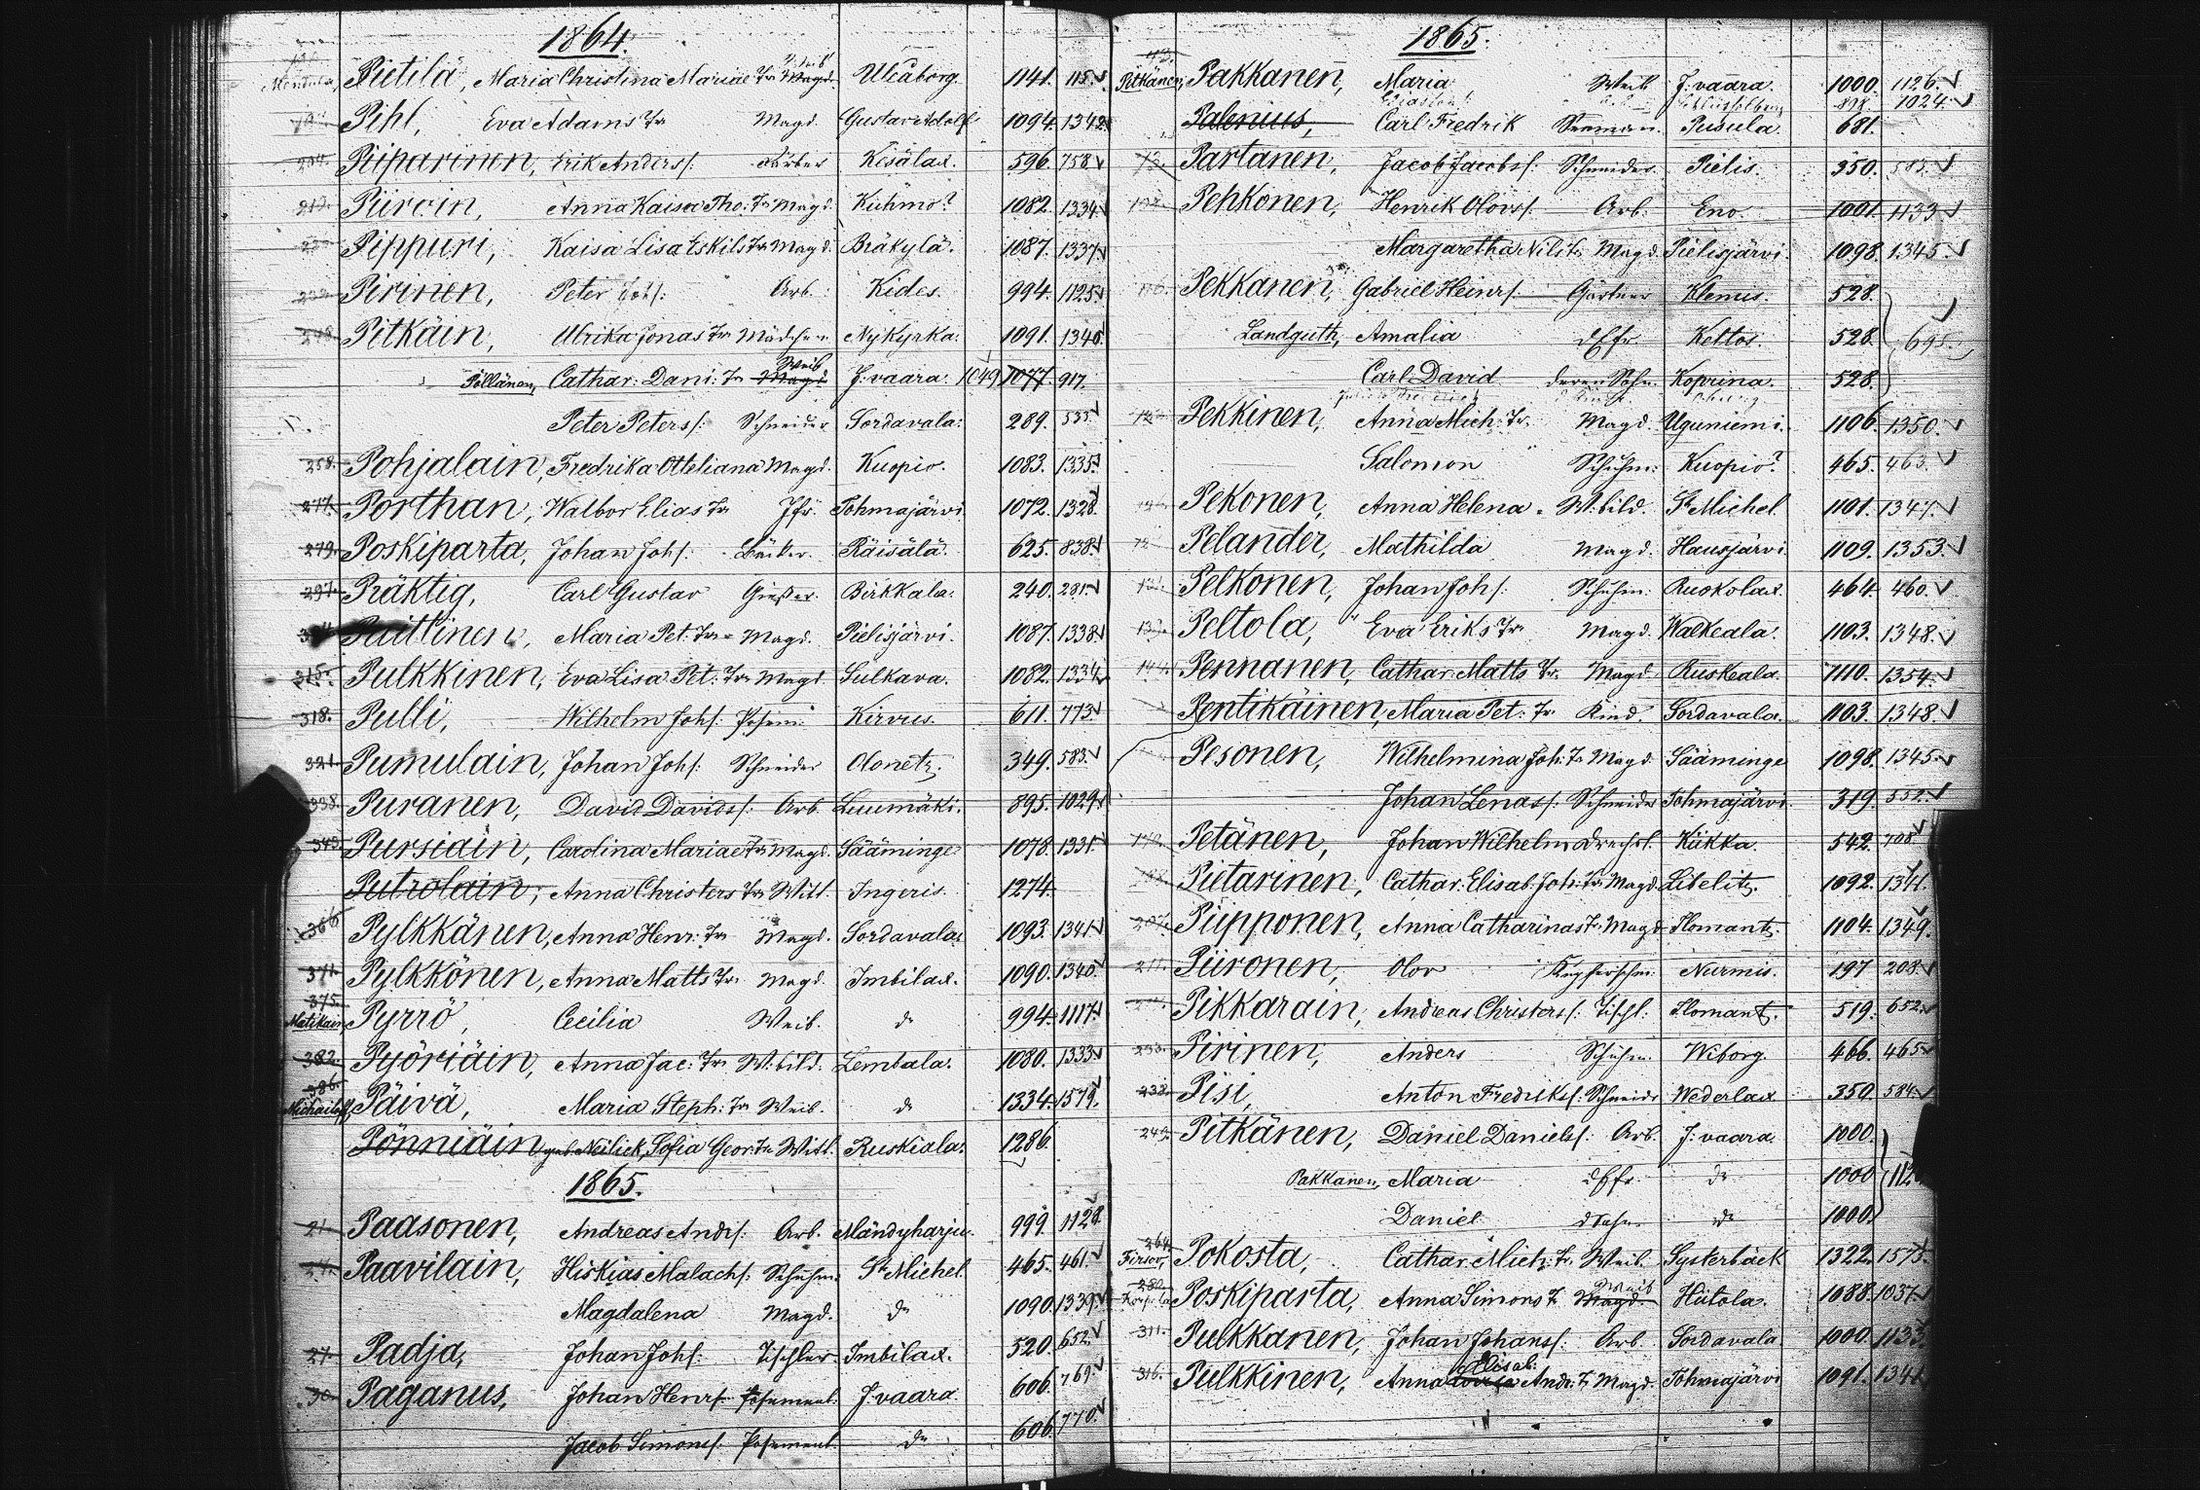 1864.
Pietilä, Maria Christina Mariae Tr Weib Magd. Uleåborg. 1141. 115.
Pihl, Eva Adams Tr Magd. Gustav Adolf 1094. 1342.
204. Piiparinen, Erik Anderss: Kesälax. 596. 758.
Piiroin, Anna Kaisa Tho: Tr Magd. Kuhmo? 1082. 1334.
Pippuri, Kaisa Lisa Eskils Tr Magd. Bräkylä. 1087. 1337.
Pirinen, Peter Johs: Arb. Kides. 994. 1125.
Pitkäin, Ulrika Jonas Tr Mädchen Nykyrka. 1091. 1340.
Pöllänen, Cathar: Dani: Tr Weib Magd J. vaara. 1049 1077. 917.
Peter Peters: Schneider Sordavala: 289. 535
258. Pohjalain, Fredrika Otteliana Magd. Kuopio. 1083. 1335.
277. Porthan, Walbor Elias Tr Jfr. Tohmajärvi. 1072. 1328.
279. Poskiparta, Johan Johs: Bäcker. Räisälä. 625. 838.
297. Präktig, Carl Gustav Gießer. Birkkala. 240. 281.
Puittinen, Maria Pet: Tr Magd. Pielisjärvi. 1087. 1338.
315. Pulkkinen, Eva Lisa Pet: Tr Magd. Sulkava. 1082. 1334.
318. Pulli, Wilhelm Johs: Posam: Kirvus. 611. 773.
321. Pumulain, Johan Johs: Schneider Olonetz. 349. 583.
338. Puranen, David Davids: Arb. Luumäki. 895. 1029.
343. Pursiain, Carolina Mariae Tr Magd. Sääminge. 1078. 1331.
Putrolain, Anna Christers Tr Witt. Ingeris. 1274.
366. Pylkkänen, Anna Henr: Tr Magd. Sordavala. 1093. 1341.
371. Pylkkönen, Anna Matts Tr. Magd. Imbilax. 1090. 1340.
375. Matikain Pyrrö, Cecilia Weib. do 994. 1117.
382. Pyöriäin, Anna Jac: Tr W.bild. Lembala. 1080. 1333.
386. Michailoff Päivä, Maria Steph: Tr Weib. do 1334. 1579.
Pönniäin geb. Neilick, Sofia Geor: Tr Witt. Ruskiala. 1286.
1865.
21. Paasonen, Andreas Ands: Arb. Mändyharju. 999. 1128.
24. Paavilain, Hiskias Malachs: Schuhm: St Michel. 465. 461.
Magdalena Magd. do 1090. 1339.
27. Padja, Johan Johs: Tischler. Imbilax. 520. 652.
30. Paganus, Johan Henrs: Posament: J. vaara. 606. 769.
Jacob Simons: Posament. do 606. 770.
1865.
Pitkänen, Pakkanen, Maria Weib J. vaara. 1000. 1126.
898. 1024.
Palenius, Carl Fredrik Seeman. Pusula. 681.
Partanen, Jacob Jacobs: Schneider Pielis. 350. 583.
Pehkonen, Henrik Olovs: Arb: Eno. 1001. 1133.
Margaretha Nils Tr Magd. Pielisjärvi. 1098. 1345.
Pekkanen, Gabriel Heinrs: Gärtner Klemis. 528.
Landguth, Amalia dEfr. Keltos. 528. 695.
Carl David deren Sohn. Koprina. 528.
Pekkinen, Anna Mich: Tr. Magd. Uguniemi. 1106. 1350.
Salomon Schuhm: Kuopio? 465. 463.
Pekonen, Anna Helena W.bild. St Michel 1101. 1347.
Pelander, Mathilda Magd. Hausjärvi 1109. 1353.
Pelkonen, Johan Johs: Schuhm: Ruokolax. 464. 460.
Peltola, Eva Eriks Tr Magd. Walkeala. 1103. 1348.
Pennanen, Cathar: Matts Tr. Magd. Ruskeala. 1110. 1354.
Pentikäinen, Maria Pet: Tr. Kind. Sordavala. 1103. 1348.
Pesonen, Wilhelmina Joh: Tr Magd. Sääminge 1098. 1345.
Johan Lenas: Schneider Tohmajärvi. 319. 552.
Petänen, Johan Wilhelm Drechsl. Kiikka. 542. 708
Pietarinen, Cathar: Elisab. Joh: Tr. Magd. Libelitz. 1092. 1341.
207. Piipponen, Anna Catharinas Tr. Magd Ilomantz. 1104. 1349.
211. Piironen, Olov Kupferschm: Nurmis. 197 208.
Pikkarain, Andreas Christers: Tischl: Ilomantz. 519. 652.
Pirinen, Anders Schuhm. Wiborg. 466. 465.
238. Pisi, Anton Fredriks: Schneider Wederlax 350. 584.
249. Pitkänen, Daniel Daniels: Arb. J. vaara. 1000.
Pakkanen, Maria dEfr. do 1000
Daniel dSohn do 1000.
264. Firsov, Pokosta, Cathar. Mich: Tr. Weib. Systerbäck 1322. 1573.
280. Poskiparta, Anna Simons Tr Weib Magd. Hiitola. 1088. 1037.
311. Pulkkanen, Johan Johans: Arb. Sordavala 1000. 1133
316. Pulkkinen, Anna Elisab: Andr: Tr Magd. Tohmajärvi 1091. 1341.